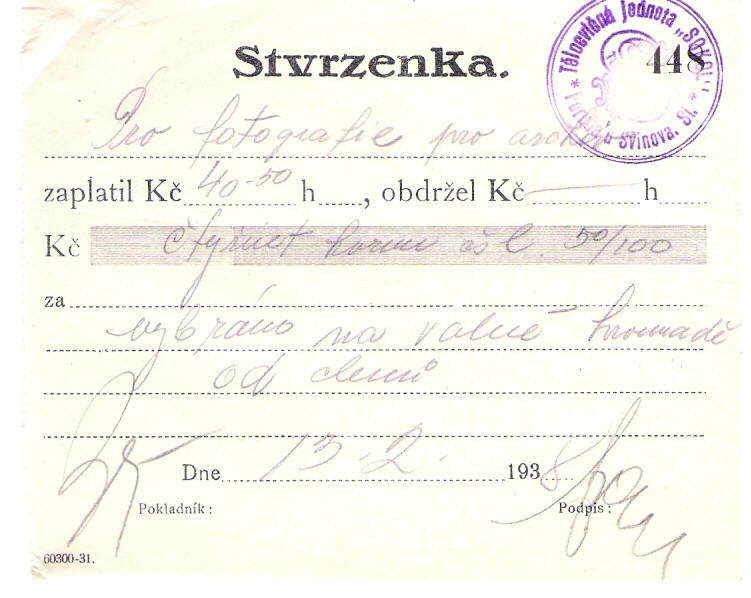 Tělocvičná jednota „SOKOL"
Svinova, Sl.
Stvrzenka.
448
Pro fotografie pro archiv
zaplatil Kč 40-50 h , obdržel Kč — h
Kč čtyřicet korun čsl. 50/100
za
vybráno na valné hromadě
od členů
Dne 13.2. 1938
Pokladník: Podpis:
60300-31.